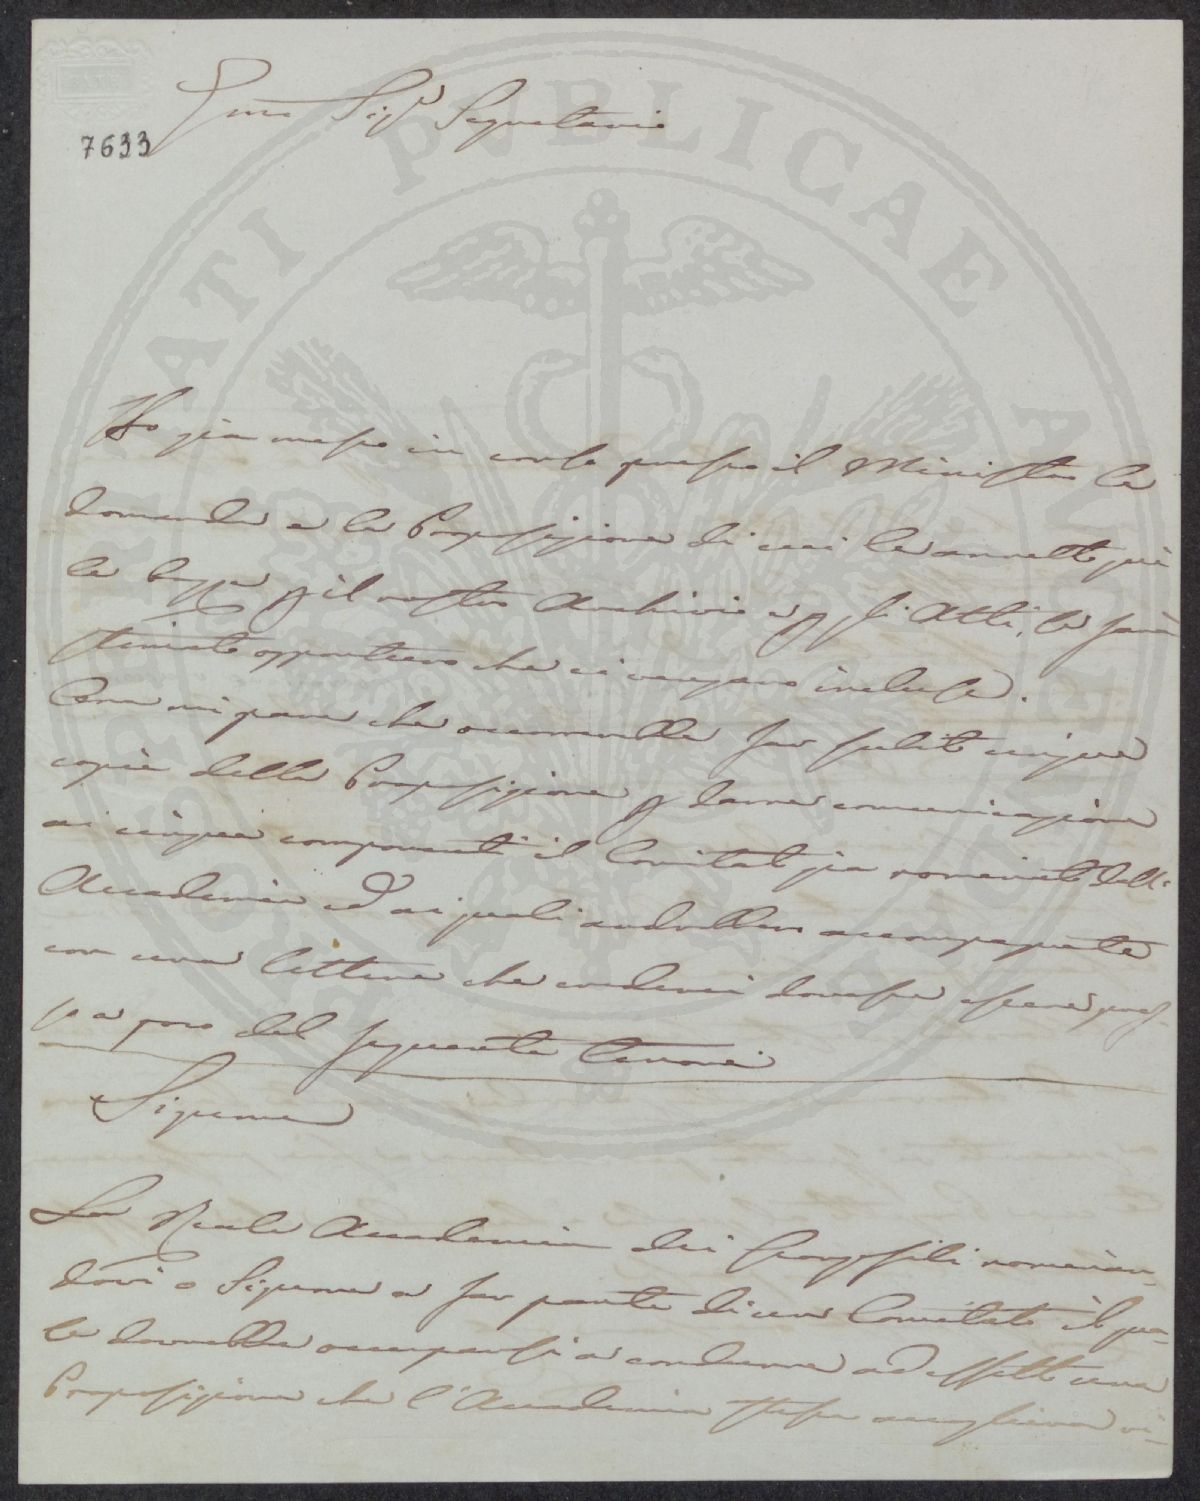 7633
Sigr Segretario
Ho gia messo in corso presso il Ministro la
domanda e la Proposizione di cui le annetto qui
la bozza il nostro Archivio e gli Atti, se sarà
stimato opportuno che ci vengano incluse.
Come mi pare che occorrerebbe far subito cinque
copie della Proposizione darne comunicazione
ai cinque componenti il Comitato gia nominato dall'
Accademia ed ai quali andrebbero accompagnate
con una lettera che crederei dovesse essere pres-
so a poco del seguente tenore
Signore
La Reale Accademia dei Georgofili nominan-
dovi o Signore a far parte di un Comitato il qua-
le dovrebbe occuparsi a condurre ad effetto una
Proposizione che l'Accademia stessa accoglieva
PROSPERITATI PUBLICAE AUGENDAE